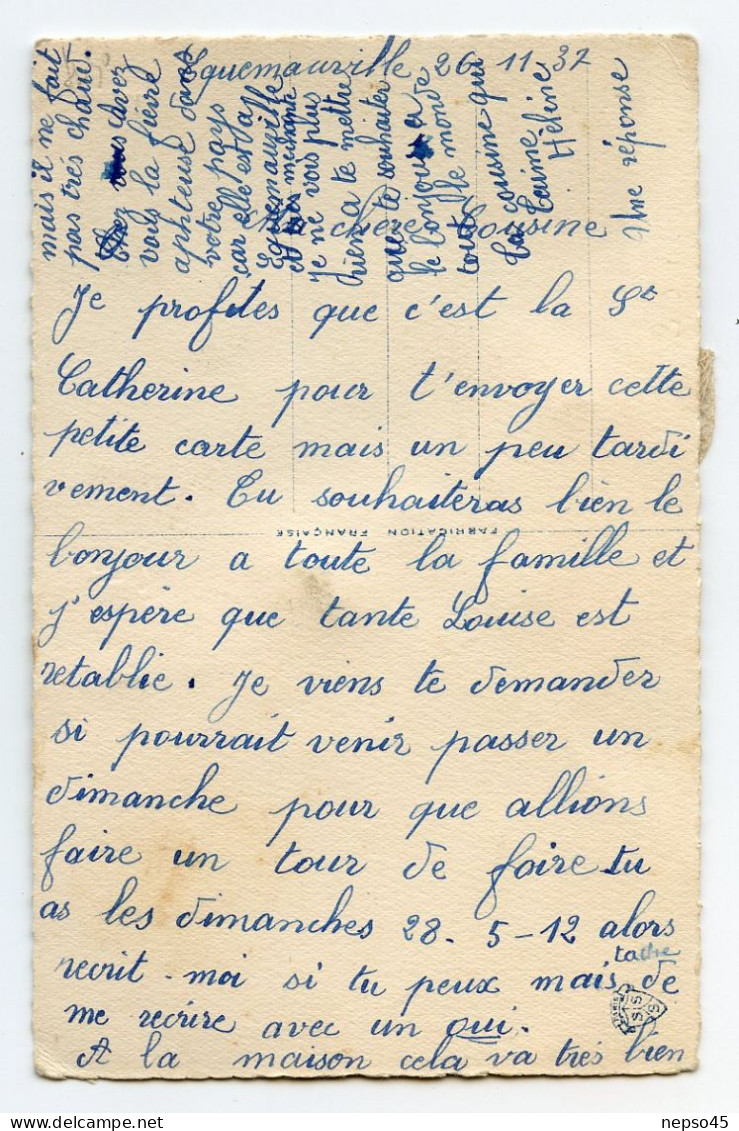 Equemauville 26 11 37
Ma chère Cousine
Je profites que c'est la St
Catherine pour t'envoyer cette
petite carte mais un peu tardi
vement. Tu souhaiteras bien le
bonjour a toute la famille et
j'espère que tante Louise est
retablie. Je viens te demander
si pourrait venir passer un
dimanche pour que allions
faire un tour de foire tu
as les dimanches 28 - 5 - 12 alors
recrit-moi si tu peux mais tache de
me recrire avec un oui.
A la maison cela va trés bien
mais il ne fait
pas trés chaud.
Chez vous avez
vous la fièvre
aphteuse dans
votre pays
car elle est a
Equemauville
et très méchante
Je ne vois plus
rien a te mettre
que te souhaiter
le bonjour a
toute le monde
Ta cousine qui
t'aime
Hélène
Une réponse
FABRICATION FRANÇAISE
PARIS
SIS
nepso45